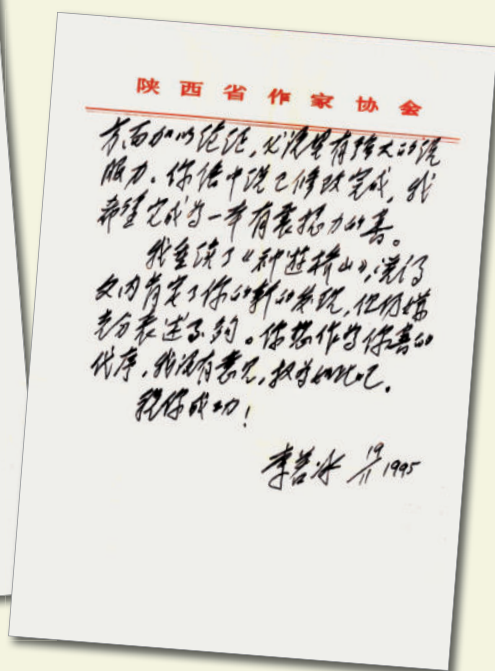 陕西省作家协会
方面加以论证，必须是有强大的说
服力。你信中说已修改完成，我
希望完成为一本有震撼力的书。
我重读了《神游桥山》，觉得
文内肯定了你的新的发现，但仍嫌
充分表述不够。你想作为你书的
代序，我没有意见，权当如此吧。
祝你成功！
李若冰 19/11 1995